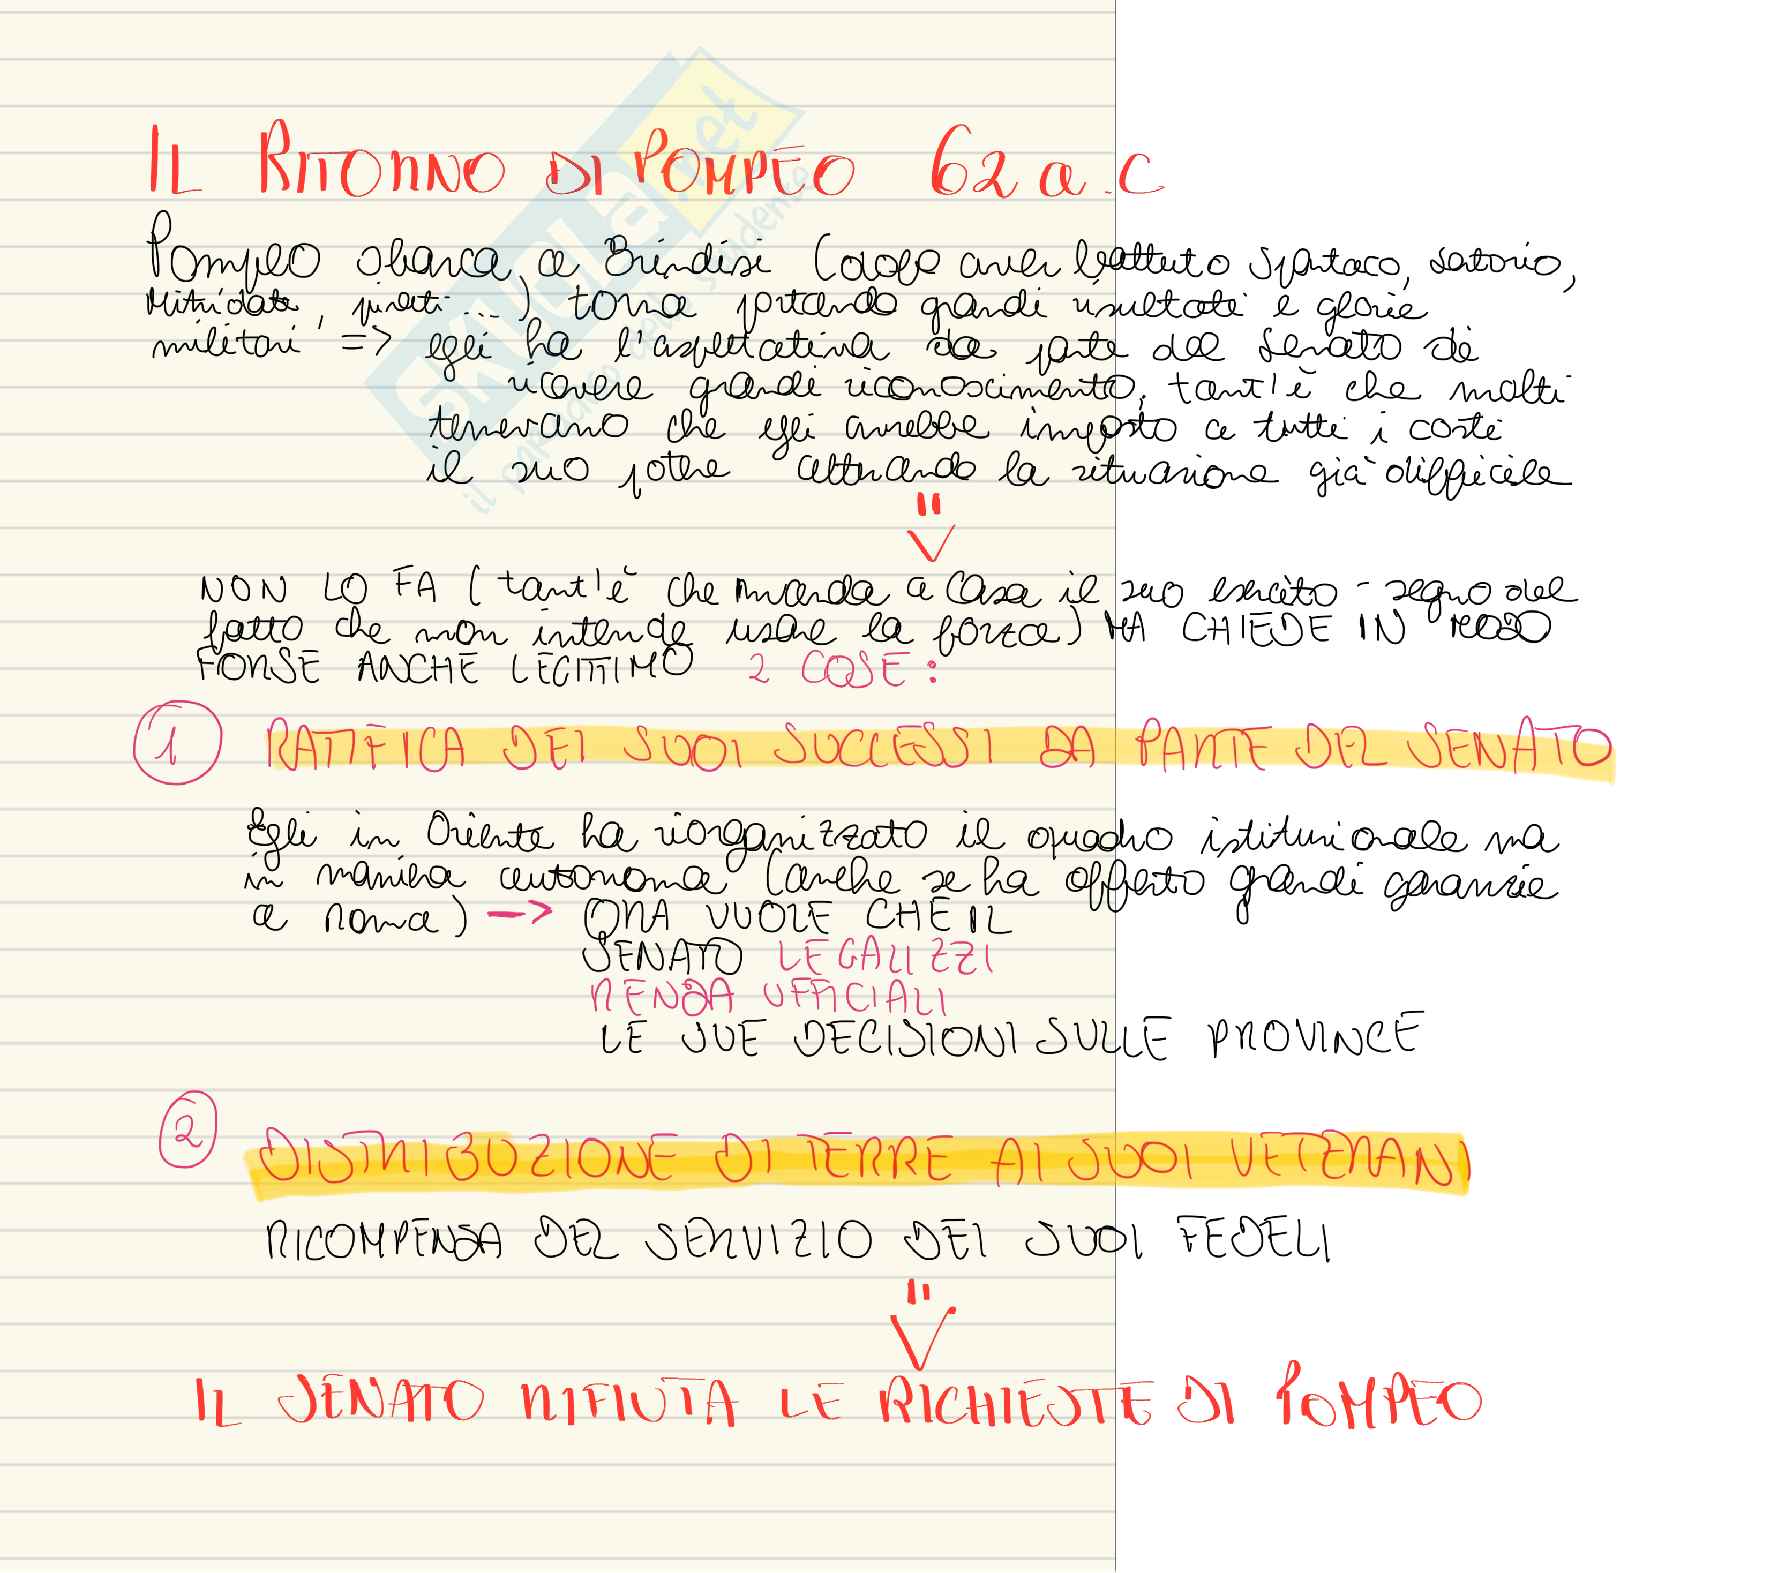 IL RITORNO DI POMPEO 62 a.C
Pompeo sbarca a Brindisi (dopo aver battuto Spartaco, Sertorio,
Mitridate, pirati...) torna portando grandi risultati e glorie
militari => egli ha l'aspettativa da parte del Senato di
ricevere grandi riconoscimento, tant'è che molti
temevano che egli avrebbe imposto a tutti i costi
il suo potere attuando la situazione già difficile
=>
NON LO FA (tant'è che manda a casa il suo esercito - segno del
fatto che non intende usare la forza) MA CHIEDE IN MODO
FORSE ANCHE LEGITTIMO 2 COSE:
1 RATIFICA DEI SUOI SUCCESSI DA PARTE DEL SENATO
Egli in Oriente ha riorganizzato il quadro istituzionale ma
in maniera autonoma (anche se ha offerto grandi garanzie
a Roma) -> ORA VUOLE CHE IL
SENATO LEGALIZZI
RENDA UFFICIALI
LE SUE DECISIONI SULLE PROVINCE
2 DISTRIBUZIONE DI TERRE AI SUOI VETERANI
RICOMPENSA DEL SERVIZIO DEI SUOI FEDELI
=>
IL SENATO RIFIUTA LE RICHIESTE DI POMPEO
SKUOLA.net
il paradiso dello studente